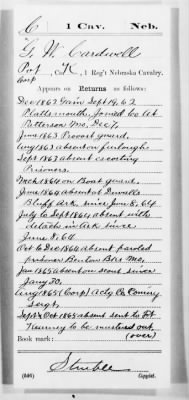 C 1 Cav. Neb.
G. W. Cardwell
Pvt, Co. K, 1 Reg't Nebraska Cavalry.
Corp
Appears on Returns as follows:
Dec 1862 Gain Sept 14, 62
Plattsmouth, Joined Co at
Patterson Mo, Dec
June 1863 Provost guard.
Aug 1863 absent on furlough
Sept 1863 absent escorting
Prisoners.
1864 on Boat guard.
June 1864 absent at Duvalls
Bluff Ark since June 8, 64
July to Sept 1864 absent with
detach in Ark since
June 8, 64
Oct to Dec 1864 absent paroled
prisoner Benton Bks Mo,
Jan 1865 absent on scout since
Jany 30,
Aug 1865 (Corp) Actg Co Comsy
Sergt,
Sept & Oct 1865 absent sent to Ft
Kearney to be mustered out
(over)
Book mark:
Struble
(646) Copyist.